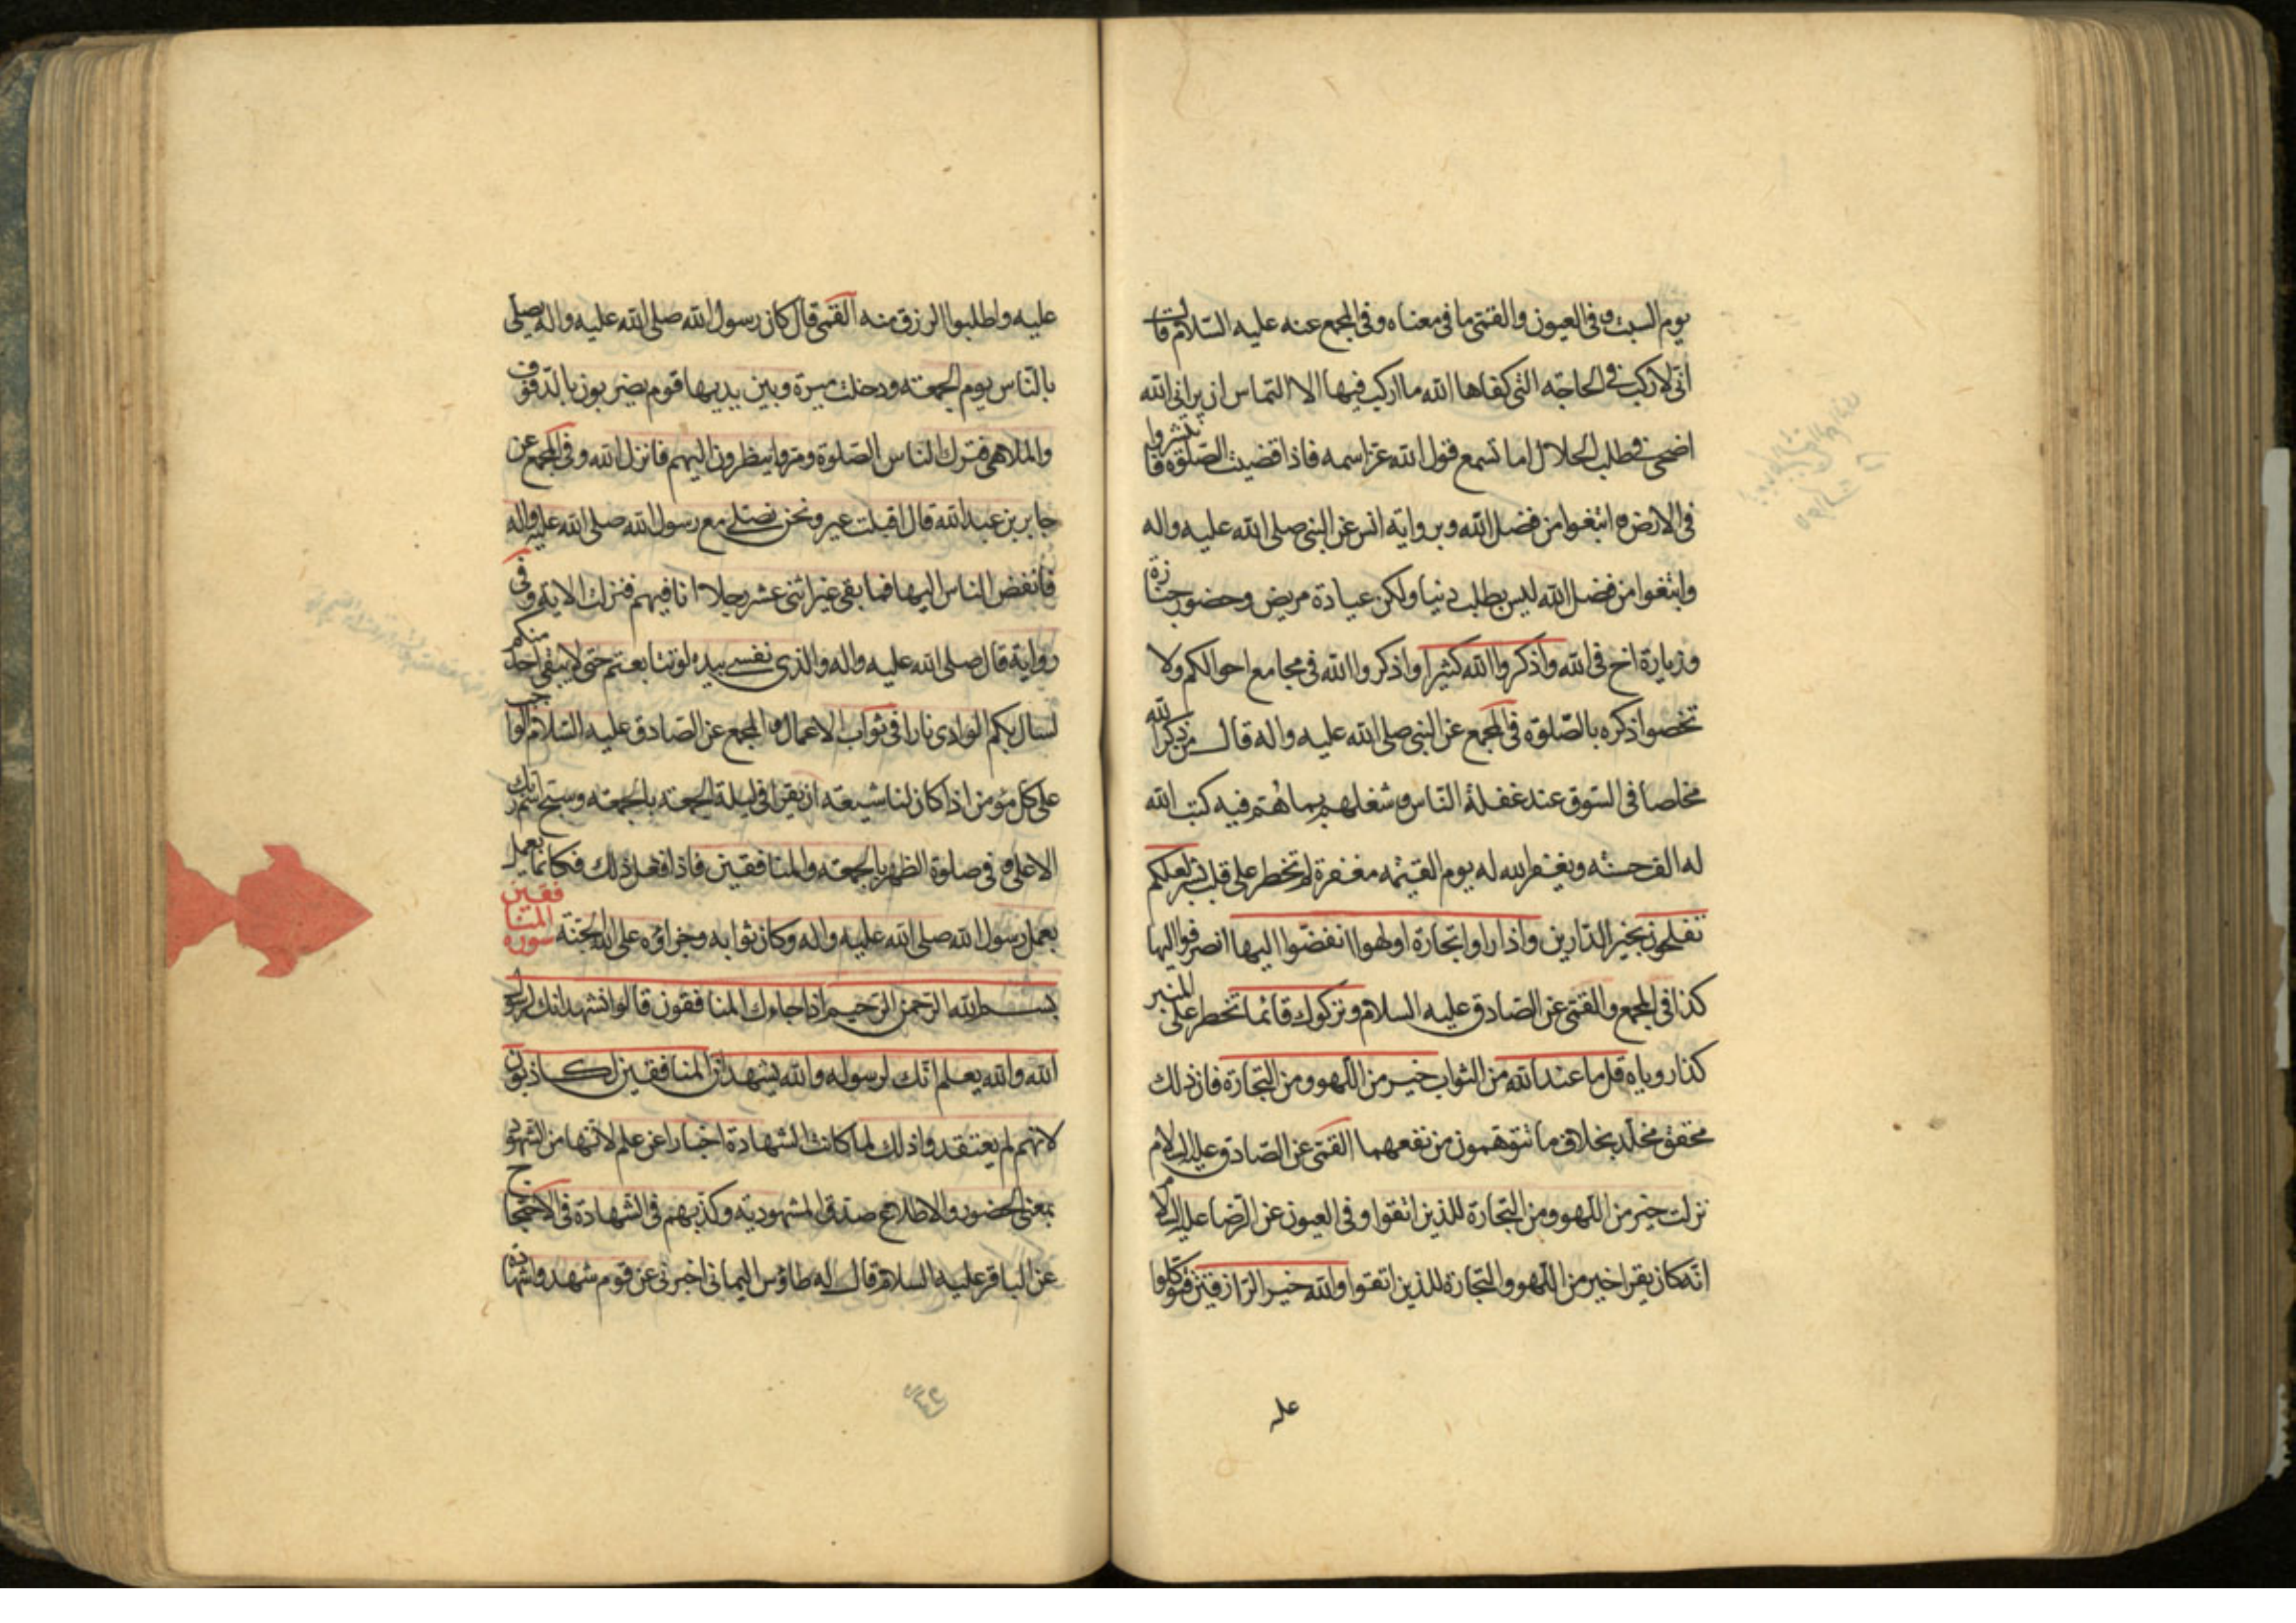 يوم السبت وفي العيون والقمّي ما في معناه وفي المجمع عنه عليه السّلام قال
انّي لاركب في الحاجة التي كفاها الله ما اركب فيها الا التماس ان يراني الله
اضحي في طلب الحلال اما تسمع قول الله عزّ اسمه فاذا قضيت الصّلوة فانتشروا
في الارض وابتغوا من فضل الله وبرواية انس عن النبي صلى الله عليه واله
وابتغوا من فضل الله ليس بطلب دنيا ولكن عيادة مريض وحضور جنازة
وزيارة اخ في الله واذكروا الله كثيرا واذكروا الله في مجامع احوالكم ولا
تخصوا ذكره بالصّلوة في المجمع عن النبي صلى الله عليه واله قال من ذكر الله
مخلصا في السّوق عند غفلة النّاس وشغلهم بما هم فيه كتب الله
له الف حسنة ويغفر الله له يوم القيمة مغفرة لم تخطر على قلب بشر لعلكم
تفلحون بخير الدّارين واذا راوا تجارة او لهوا انفضّوا اليها انصرفوا اليها
كذا في المجمع والقمّي عن الصّادق عليه السلام وتركوك قائما تخطر على المنبر
كذا روياه قل ما عند الله من الثواب خير من اللّهو ومن التجارة فان ذلك
محقق مخلّد بخلاف ما تتوهمون من نفعهما القمّي عن الصّادق عليه السلام
نزلت خير من اللّهو ومن التجارة للذين اتقوا وفي العيون عن الرّضا عليه السلام
انّه كان يقرا خير من اللّهو والتجارة للذين اتقوا والله خير الرّازقين فتوكلوا
عليه
عليه واطلبوا الرزق منه القمّي قال كان رسول الله صلى الله عليه واله يصلي
بالنّاس يوم الجمعة ودخلت ميرة وبين يديها قوم يضربون بالدّفوف
والملاهي فترك الناس الصّلوة ومرّوا ينظرون اليهم فانزل الله وفي المجمع عن
جابر بن عبد الله قال اقبلت عير ونحن نصلي مع رسول الله صلى الله عليه واله
فانفض الناس اليها فما بقي غير اثني عشر رجلا انا فيهم فنزلت الاية وفي
رواية قال صلى الله عليه واله والذي نفسي بيده لو تتابعتم حتى لا يبقى احد منكم
لسال بكم الوادي نارا في ثواب الاعمال والمجمع عن الصادق عليه السّلام الواجب
على كل مؤمن اذا كان لنا شيعة ان يقرا في ليلة الجمعة بالجمعة وسبح اسم ربك
الاعلى وفي صلوة الظهر بالجمعة والمنافقين فاذا فعل ذلك فكانما يعمل
بعمل رسول الله صلى الله عليه واله وكان ثوابه وجزاؤه على الله الجنّة سورة المنافقين
بسم الله الرّحمن الرّحيم اذا جاءك المنافقون قالوا نشهد انك لرسول
الله والله يعلم انّك لرسوله والله يشهد انّ المنافقين لكاذبون
لانهم لم يعتقدوا ذلك لما كانت الشهادة اخبارا عن علم لانّها من الشهود
بمعنى الحضور والاطلاع صدق المشهود به وكذبهم في الشهادة في الاحتجاج
عن الباقر عليه السلام قال له طاؤس اليماني اخبرني عن قوم شهدوا شهادة